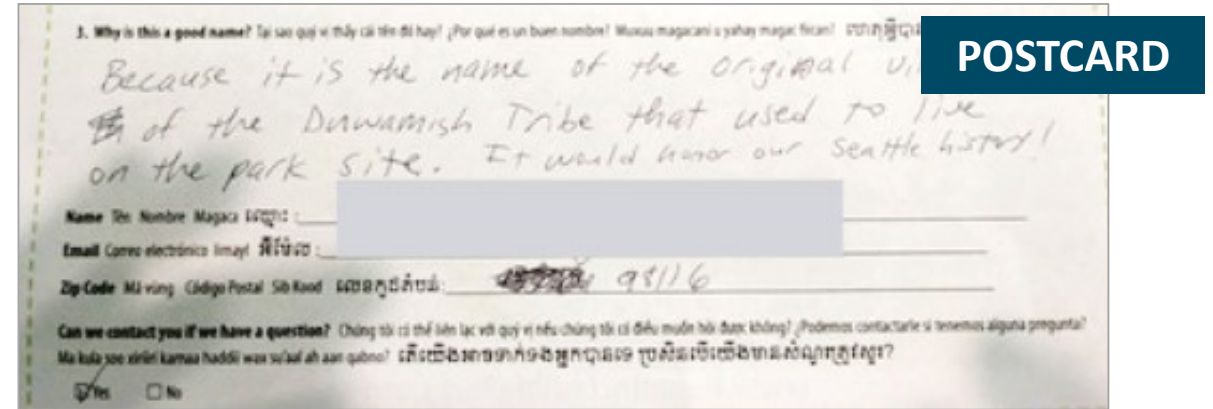 3. Why is this a good name? Tại sao quý vị thấy cái tên đó hay? ¿Por qué es un buen nombre? Muxuu magacani u yahay magac fiican?
POSTCARD
Because it is the name of the original
of the Duwamish Tribe that used to live
on the park site. It would honor our Seattle history!
Name Tên Nombre Magaca ឈ្មោះ :
Email Correo electrónico Iimayl អ៊ីម៉ែល :
Zip Code Mã vùng Código Postal Sib Kood លេខកូដតំបន់: 98116
Can we contact you if we have a question? Chúng tôi có thể liên lạc với quý vị nếu chúng tôi có điều muốn hỏi được không? ¿Podemos contactarle si tenemos alguna pregunta?
Ma kula soo xiriiri kamaa haddii wax su'aal ah aan qabno? តើយើងអាចទាក់ទងអ្នកបានទេ ប្រសិនបើយើងមានសំណួរត្រូវសួរ?
Yes No